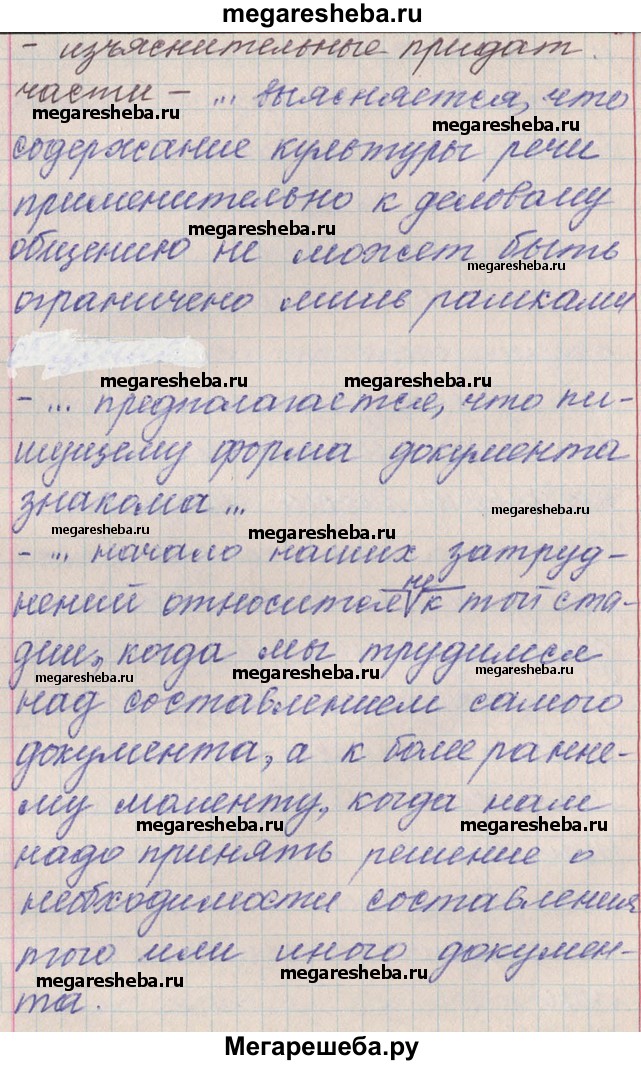 megaresheba.ru
- изъяснительные придат.
части - ... выясняется, что
megaresheba.ru
megaresheba.ru
содержание культуры речи
применительно к деловому
megaresheba.ru
общению не может быть
megaresheba.ru
ограничено лишь рамками
megaresheba.ru megaresheba.ru
- ... предполагается, что пи-
шущему форма документа
знакома ...
megaresheba.ru
megaresheba.ru
megaresheba.ru
- ... начало наших затруд-
нений относится не к той ста-
дии, когда мы трудимся
megaresheba.ru megaresheba.ru megaresheba.ru
над составлением самого
документа, а к более ранне-
му моменту, когда нам
megaresheba.ru megaresheba.ru
надо принять решение о
необходимости составления
того или иного докумен-
megaresheba.ru megaresheba.ru
та.
Мегарешеба.ру